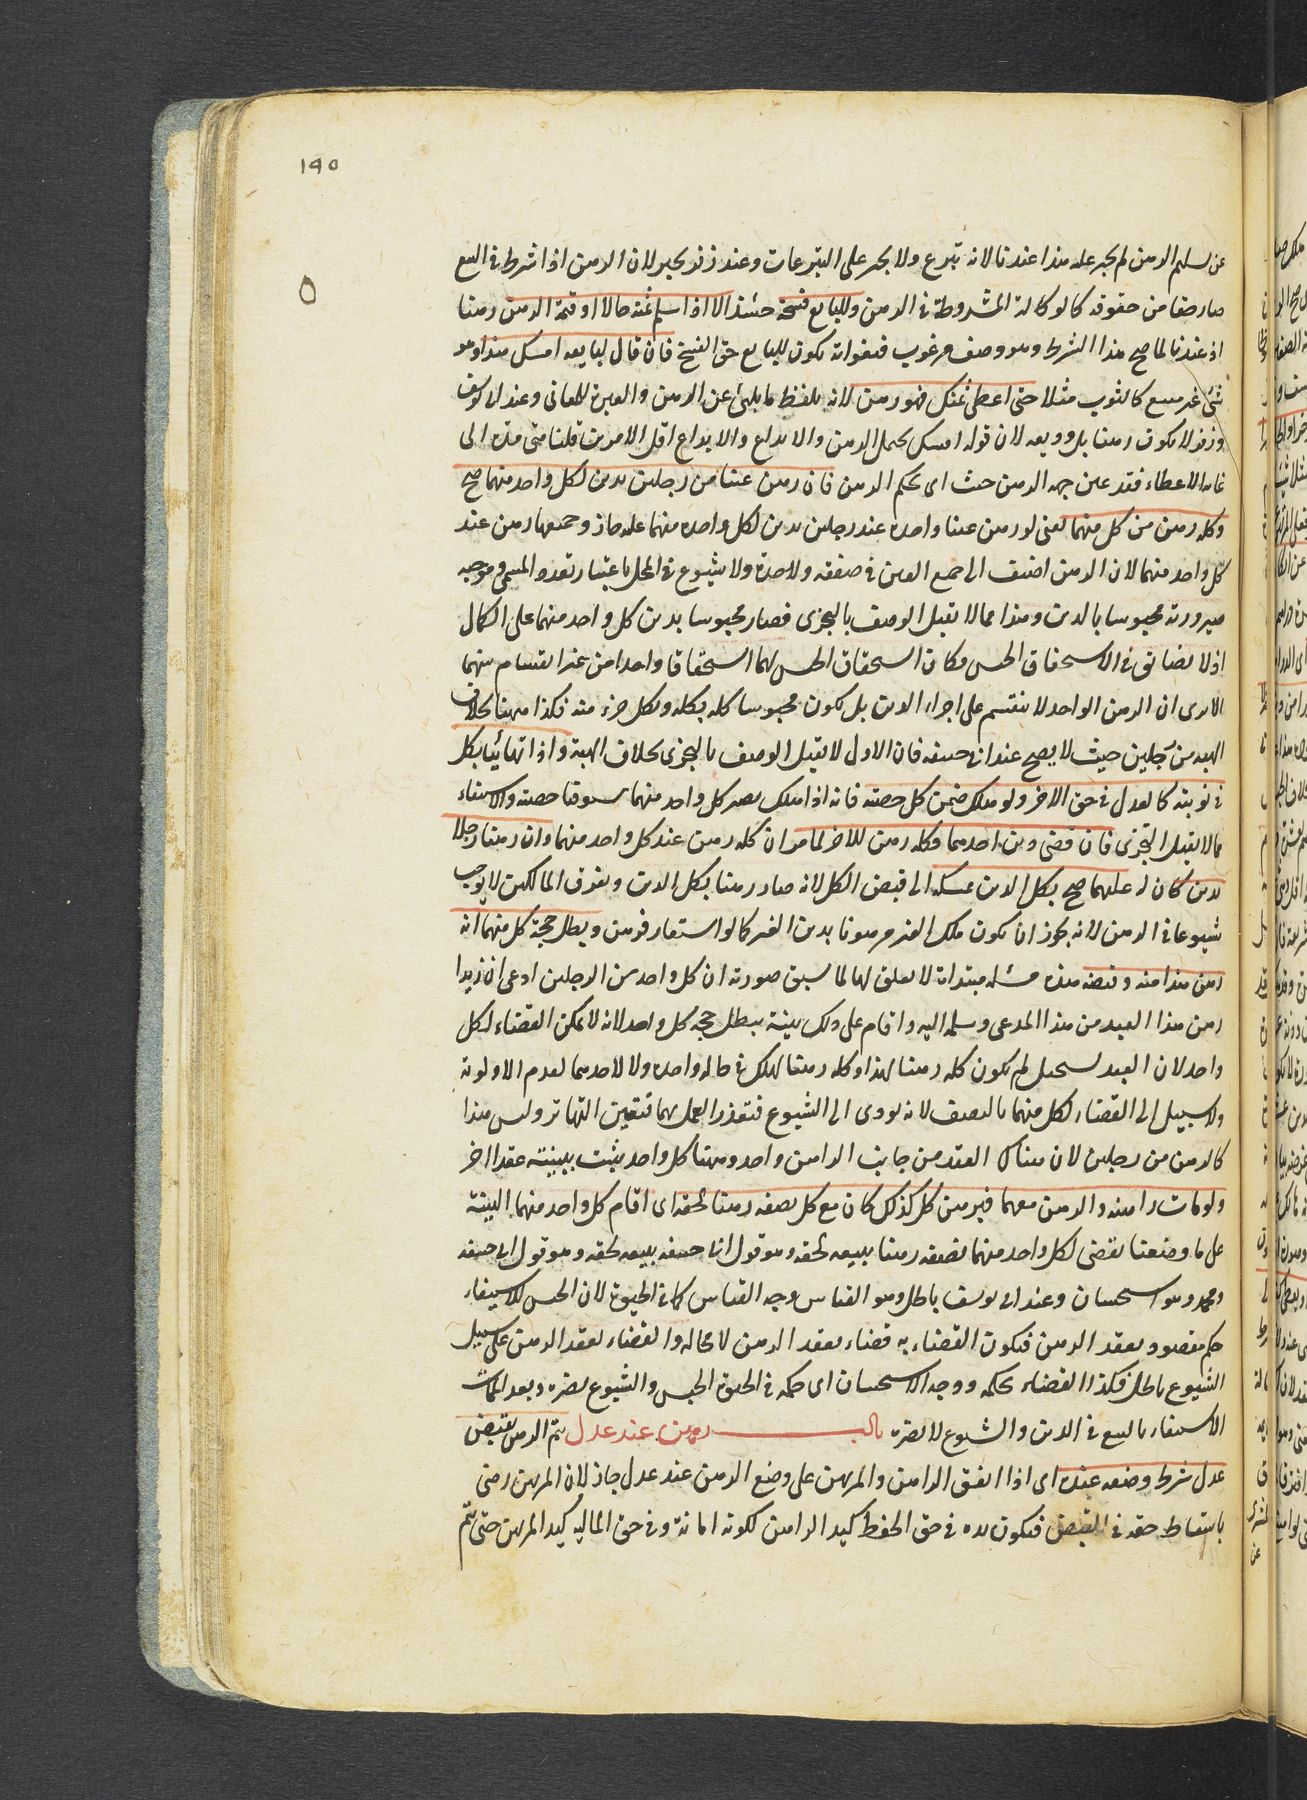 ١٩٥
عن تسليم الرهن لم يجبر عليه هذا عندنا لانه تبرع ولا يجبر على التبرعات وعند زفر يجبر لان الرهن اذا شرط في البيع
صار حقا من حقوقه كالوكالة المشروطة في الرهن وللبايع فسخه حينئذ الا اذا سلم ثمنه حالا او قيمة الرهن رهنا
اذ عندنا لما صح هذا الشرط وهو وصف مرغوب فبفواته يكون للبايع حق الفسخ فان قال لبايعه امسك هذا وهو
شئ غير مبيع كالثوب مثلا حتى اعطى ثمنك فهو رهن لانه تلفظ ما ينبئ عن الرهن والعبرة للمعاني وعند ابى يوسف
وزفر لا يكون رهنا بل وديعه لان قوله امسك يحتمل الرهن والايداع والايداع اقل الامرين قلنا متى مده الى
غايه الاعطاء فقد عين جهه الرهن حيث اى بحكم الرهن فان رهن عينا من رجلين بدين لكل واحد منهما صح
وكله رهن من كل منهما يعنى لو رهن عينا واحده عند رجلين بدين لكل واحد منهما عليه جاز وجميعها رهن عند
كل واحد منهما لان الرهن اضيف الى جميع العين في صفقه واحدة ولا شيوع في المحل باعتبار تعدد المستحق وموجبه
صيرورته محبوسا بالدين وهذا مما لا يقبل الوصف بالتجزى فصار محبوسا بدين كل واحد منهما على الكمال
اذ لا تضايق في الاستحقاق الحبس فكان استحقاق الحبس لهما استحقاقا واحدا من غير انقسام بينهما
الا يرى ان الرهن الواحد لا ينقسم على اجزاء الدين بل يكون محبوسا كله بكله وبكل جزء منه فكذا ههنا بخلاف
الهبه من رجلين حيث لا يصح عند ابى حنيفه فان الاول لا يقبل الوصف بالتجزى بخلاف الهبة واذا تهائيا فكل
في نوبته كالعدل في حق الاخر ولو هلك ضمن كل حصته فانه اذا هلك يصير كل واحد منهما مستوفيا حصته والاستيفاء
مما لا يقبل التجزى فان قضى دين احدهما فكله رهن للاخر لما مر ان كله رهن عند كل واحد منهما وان رهنا رجلا
بدين كان له عليهما صح بكل الدين يمسكه الى قبض الكل لانه صار رهنا بكل الدين وتفرق المالكين لا يوجب
شيوعا في الرهن لانه يجوز ان يكون ملك الغير مرهونا بدين الغير كما لو استعار فرهن وبطل حجة كل منهما انه
رهن هذا منه وقبضه هذه مسئله مبتدأة لا تعلق لها لما سبق صورته ان كل واحد من الرجلين ادعى ان زيدا
رهن هذا العبد من هذا المدعى وسلمه اليه واقام على ذلك بينة يبطل حجه كل واحد لانه لا يمكن القضاء لكل
واحد لان العبد يستحيل ان يكون كله رهنا لهذا وكله رهنا لذلك في حاله واحده ولا لاحدهما لعدم الاولويه
ولا سبيل الى القضاء لكل منهما بالنصف لانه يؤدى الى الشيوع فتعذر العمل بهما فتعين التهاتر وليس هذا
كالرهن من رجلين لان هناك العقد من جانب الراهن واحد وههنا كل واحد يثبت ببينته عقدا اخر
ولو مات راهنه والرهن معهما فبرهن كل كذلك كان مع كل نصفه رهنا بحقه اى اقام كل واحد منهما البينة
على ما وصفنا يقضى لكل واحد منهما بنصفه رهنا يبيعه بحقه وهو قول ابى حنيفه يبيعه بحقه وهو قول ابى حنيفه
ومحمد وهو استحسان وعند ابى يوسف باطل وهو القياس وجه القياس كما في الحيوة لان الحبس للاستيفاء
حكم مقصود بعقد الرهن فيكون القضاء به قضاء بعقد الرهن لا محاله والقضاء بعقد الرهن على سبيل
الشيوع باطل فكذا القضاء بحكمه ووجه الاستحسان اى حكمه في الحيوة الحبس والشيوع يضره وبعد الممات
الاستيفاء بالبيع في الدين والشيوع لا يضره باب رهن عند عدل يتم الرهن بقبض
عدل شرط وضعه عنده اى اذا اتفق الراهن والمرتهن على وضع الرهن عند عدل جاز لان المرتهن رضى
باسقاط حقه في القبض فيكون يده في حق الحفظ كيد الراهن لكونه امانة وفي حق الماليه كيد المرتهن حتى يتم